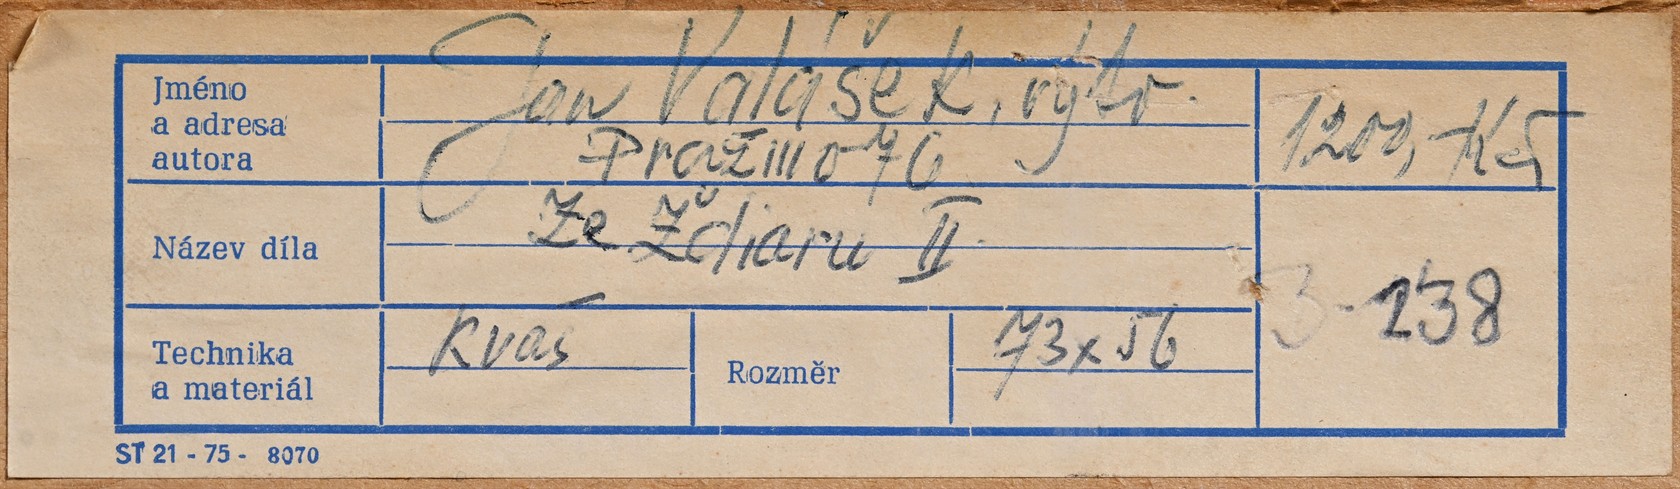 Jméno
a adresa
autora
Jan Valášek, výtv.
Pražmo 76
1200,- Kčs
Název díla
Ze Ždiaru II.
Technika
a materiál
kvaš
Rozměr
73x56
3-238
ST 21 - 75 - 8070